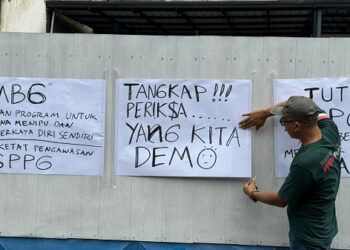 MBG"
AN PROGRAM UNTUK
NA MENIPU DAN
ERKAYA DIRI SENDIRI
KETAT PENGAWASAN
SPPG
TANGKAP !!!
PERIK$A.....
YANG KITA
DEMO
TUT